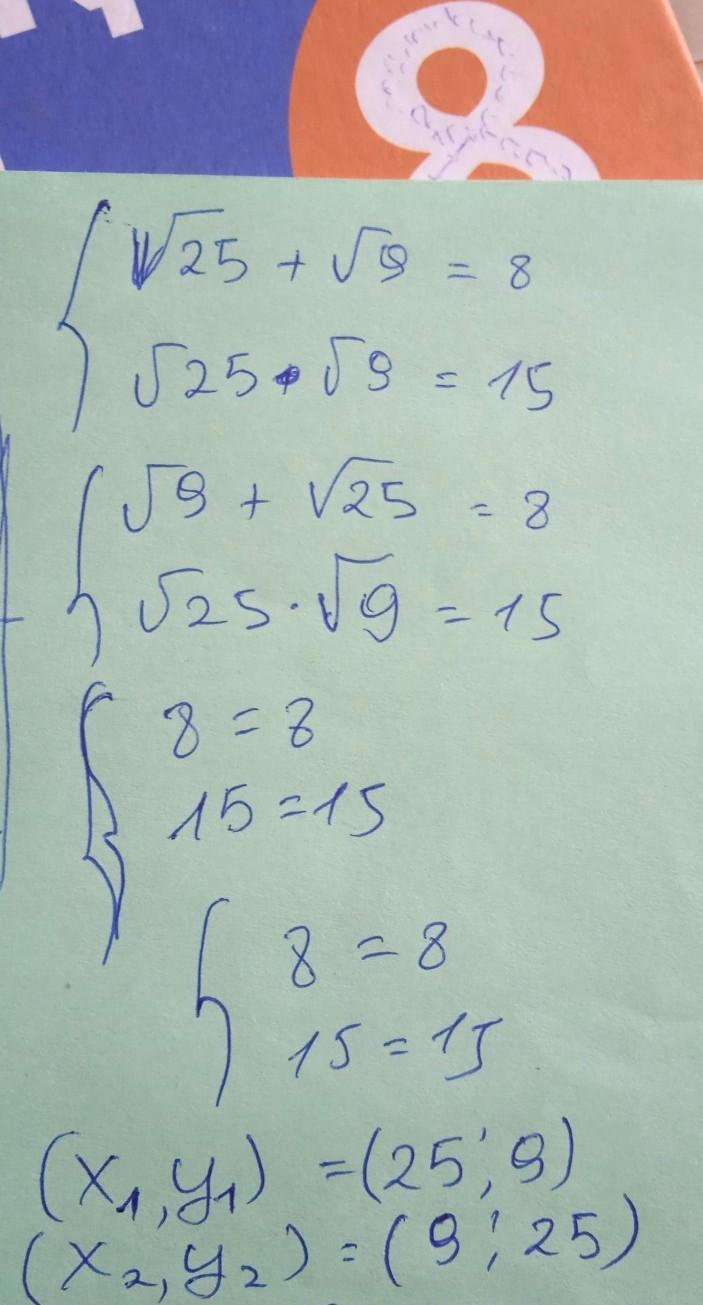 8
√25 + √9 = 8
√25 · √9 = 15
√9 + √25 = 8
√25 · √9 = 15
8 = 8
15 = 15
8 = 8
15 = 15
(x₁, y₁) = (25; 9)
(x₂, y₂) = (9; 25)